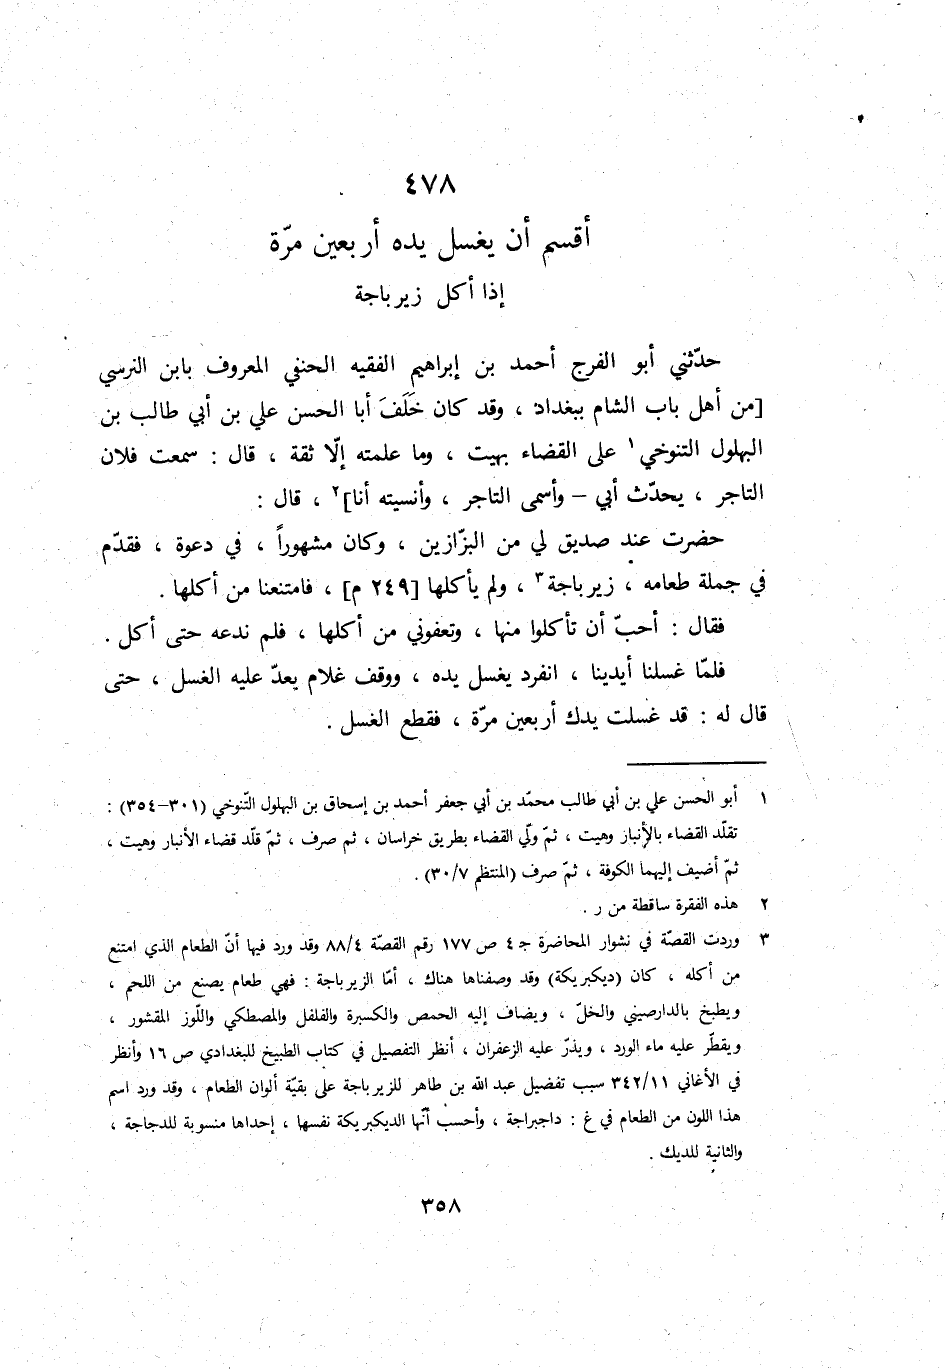 ٤٧٨
أقسم أن يغسل يده أربعين مرّة
إذا أكل زيرباجة
حدّثني أبو الفرج أحمد بن إبراهيم الفقيه الحنفي المعروف بابن النرسي
[من أهل باب الشام ببغداد ، وقد كان خَلَفَ أبا الحسن علي بن أبي طالب بن
البهلول التنوخي١ على القضاء بهيت ، وما علمته إلّا ثقة ، قال : سمعت فلان
التاجر ، يحدّث أبي – وأسمى التاجر ، وأنسيته أنا]٢ ، قال :
حضرت عند صديق لي من البزّازين ، وكان مشهوراً ، في دعوة ، فقدّم
في جملة طعامه ، زيرباجة٣ ، ولم يأكلها [٢٤٩ م] ، فامتنعنا من أكلها .
فقال : أحبّ أن تأكلوا منها ، وتعفوني من أكلها ، فلم ندعه حتى أكل .
فلمّا غسلنا أيدينا ، انفرد يغسل يده ، ووقف غلام يعدّ عليه الغسل ، حتى
قال له : قد غسلت يدك أربعين مرّة ، فقطع الغسل .
١ أبو الحسن علي بن أبي طالب محمّد بن أبي جعفر أحمد بن إسحاق بن البهلول التّنوخي (٣٠١–٣٥٤) :
تقلّد القضاء بالأنبار وهيت ، ثمّ ولّي القضاء بطريق خراسان ، ثم صرف ، ثمّ قلّد قضاء الأنبار وهيت ،
ثمّ أضيف إليهما الكوفة ، ثمّ صرف (المنتظم ٣٠/٧) .
٢ هذه الفقرة ساقطة من ر .
٣ وردت القصّة في نشوار المحاضرة جـ ٤ ص ١٧٧ رقم القصّة ٨٨/٤ وقد ورد فيها أنّ الطعام الذي امتنع
من أكله ، كان (ديكبريكة) وقد وصفناها هناك ، أمّا الزيرباجة : فهي طعام يصنع من اللحم ،
ويطبخ بالدارصيني والخلّ ، ويضاف إليه الحمص والكسبرة والفلفل والمصطكي واللّوز المقشور ،
ويقطّر عليه ماء الورد ، ويذرّ عليه الزعفران ، أنظر التفصيل في كتاب الطبيخ للبغدادي ص ١٦ وأنظر
في الأغاني ٣٤٢/١١ سبب تفضيل عبد الله بن طاهر للزيرباجة على بقيّة ألوان الطعام ، وقد ورد اسم
هذا اللون من الطعام في غ : داجبراجة ، وأحسب أنّها الديكبريكة نفسها ، إحداها منسوبة للدجاجة ،
والثانية للديك .
٣٥٨